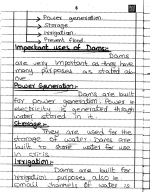 Power generation
Storage
Irrigation
Prevent Flood
Important uses of Dams:-
Dams
are very important as they have
many purposes as stated ab-
ove -
Power Generation:-
Dams are built
for power generation. Power is
electricity is generated through
water stored in it.
Storage:-
They are used for the
storage of water. Dams are
built to store water for use
in crisis.
Irrigation:-
Dams are built for
irrigation purposes also ie
small channels of water is